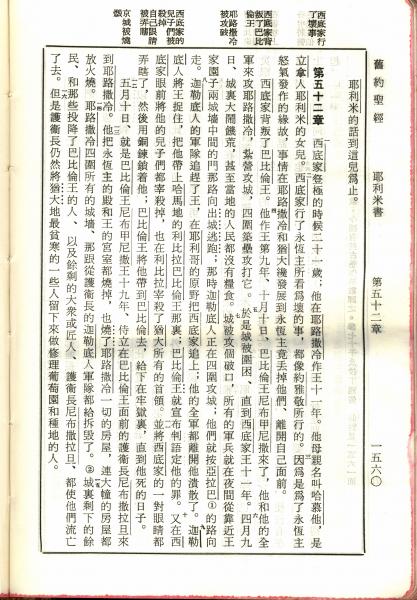 舊約聖經　耶利米書　第五十二章　一五六〇
西底家行
了壞事
西底家背
叛了巴比
耶路撒冷
被攻破
西底家的
兒子們被
殺掉
自己眼睛
被弄瞎
京城被燒
燬
耶利米的話到這兒爲止。
第五十二章　西底家登極的時候二十一歲；他在耶路撒冷作王十一年。他母親名叫哈慕他，是
立拿人耶利米的女兒。西底家行了永恆主所看爲壞的事，都像約雅敬所行的。因爲是爲了永恆主
怒氣發作的緣故，事情在耶路撒冷和猶大纔發展到永恆主竟丟掉他們、離開自己面前。
西底家背叛了巴比倫王。他作王第九年、十月十日、巴比倫王尼布甲尼撒來了，他和他的全
軍來攻耶路撒冷，紮營攻城，四圍築壘攻打它。於是城被圍困、直到西底家王十一年。四月九
日、城裏大鬧饑荒，甚至當地的人民都沒有糧食。城被攻個破口，所有的軍兵就在夜間從靠近王
家園子兩城牆中間的門那路向出城逃跑；那時迦勒底人正在四圍攻城；他們就按亞拉巴①的路向
走。迦勒底人的軍隊追趕了王，在耶利哥的原野把西底家追上；他的全軍都離開他潰散了。迦勒
底人將王捉住，把他帶上哈馬地的利比拉巴比倫王那裏；巴比倫王就宣布判語定他的罪。又在西
底家眼前將他的兒子們都宰殺掉，也在利比拉宰殺了猶大所有的首領。並將西底家的一對眼睛都
弄瞎了，然後用銅鍊鎖着他；巴比倫王將他帶到巴比倫去，給下在牢獄裏，直到他死的日子。
五月十日、就是巴比倫王尼布甲尼撒王十九年、侍立在巴比倫王面前的護衞長尼布撒拉旦來
到耶路撒冷。他把永恆主的殿和王的宮室都燒掉，也燒了耶路撒冷一切的房屋，連大幢的房屋都
放火燒。耶路撒冷四圍所有的城牆、那跟從護衞長的迦勒底人軍隊都給拆毀了。②城裏剩下的餘
民、和那些投降了巴比倫王的人、以及餘剩的大衆或匠人、護衞長尼布撒拉旦、都使他們流亡
了去。但是護衞長仍然將猶大地最貧寒的一些人留下來做修理葡萄園和種地的人。